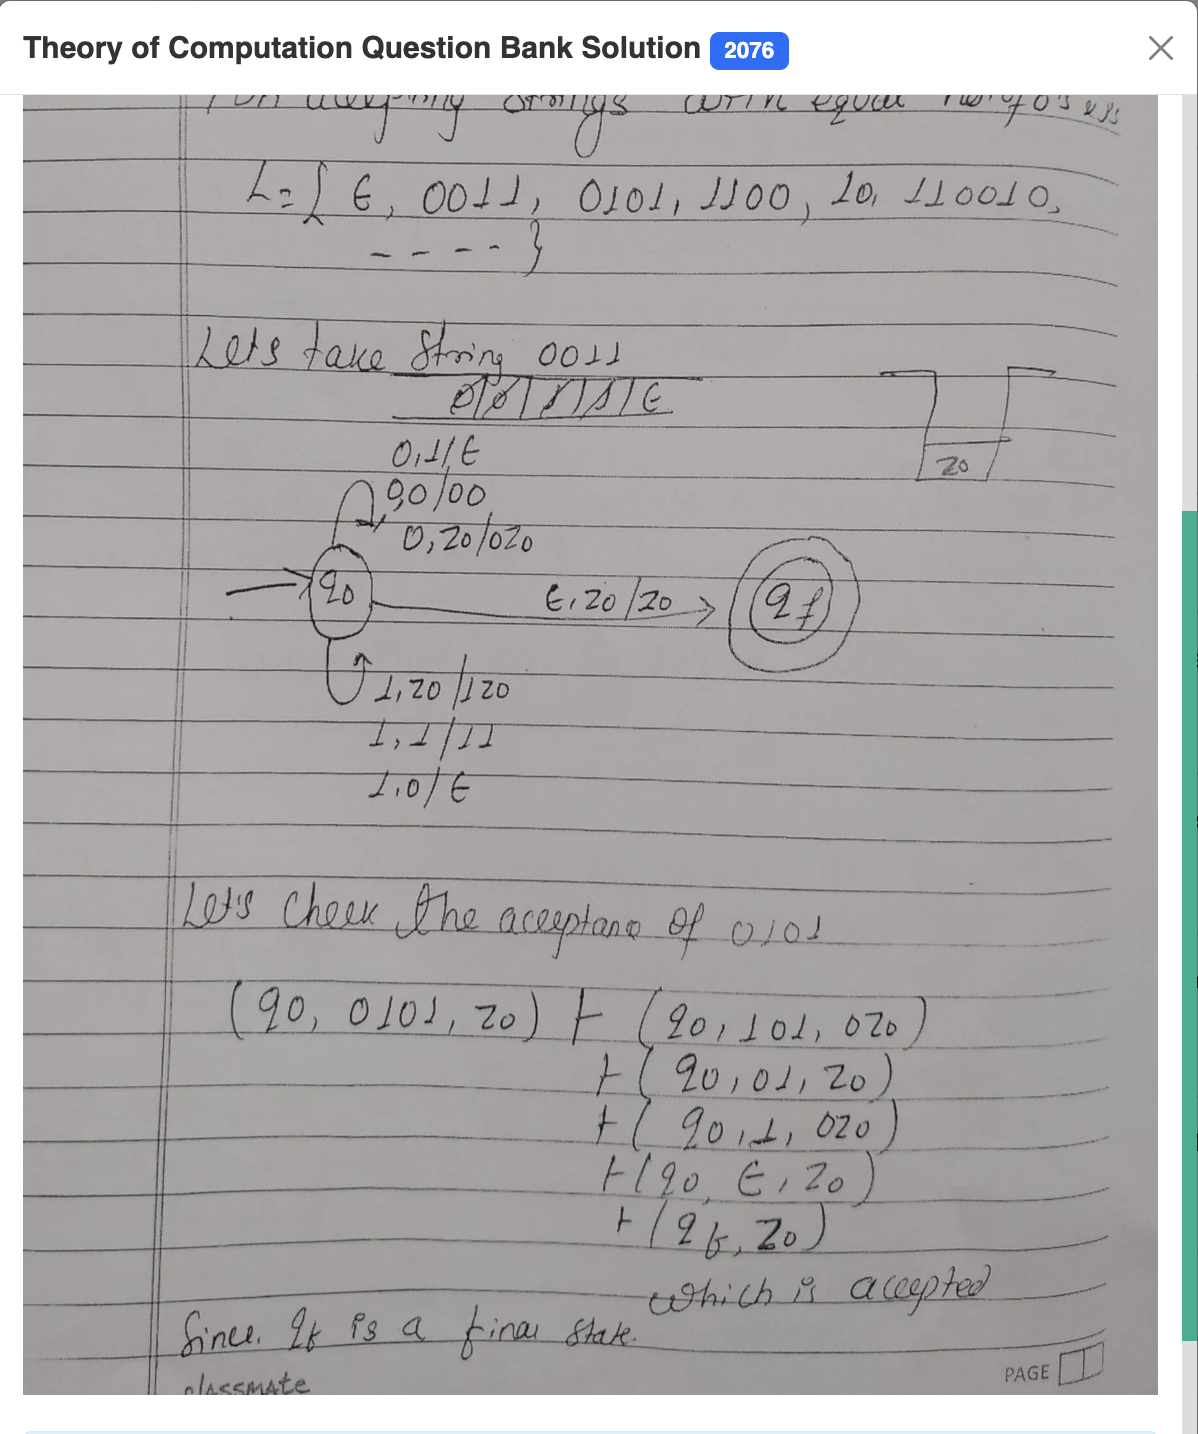 Theory of Computation Question Bank Solution 2076
accepting strings with equal no. of 0's & 1's
L = { ϵ, 0011, 0101, 1100, 10, 110010,
- - - - }
Lets take String 0011
0 / 0 / 1 / 1 / ϵ
0,1/ϵ
0,0/00
0,z0/0z0
z0
q0
ϵ,z0/z0
qf
1,z0/1z0
1,1/11
1,0/ϵ
Let's Check the acceptane of 0101
(q0, 0101, z0) ⊢ (q0, 101, 0z0)
⊢ (q0, 01, z0)
⊢ (q0, 1, 0z0)
⊢ (q0, ϵ, z0)
⊢ (qf, z0)
which is accepted
Since. qf is a final state.
classmate
PAGE